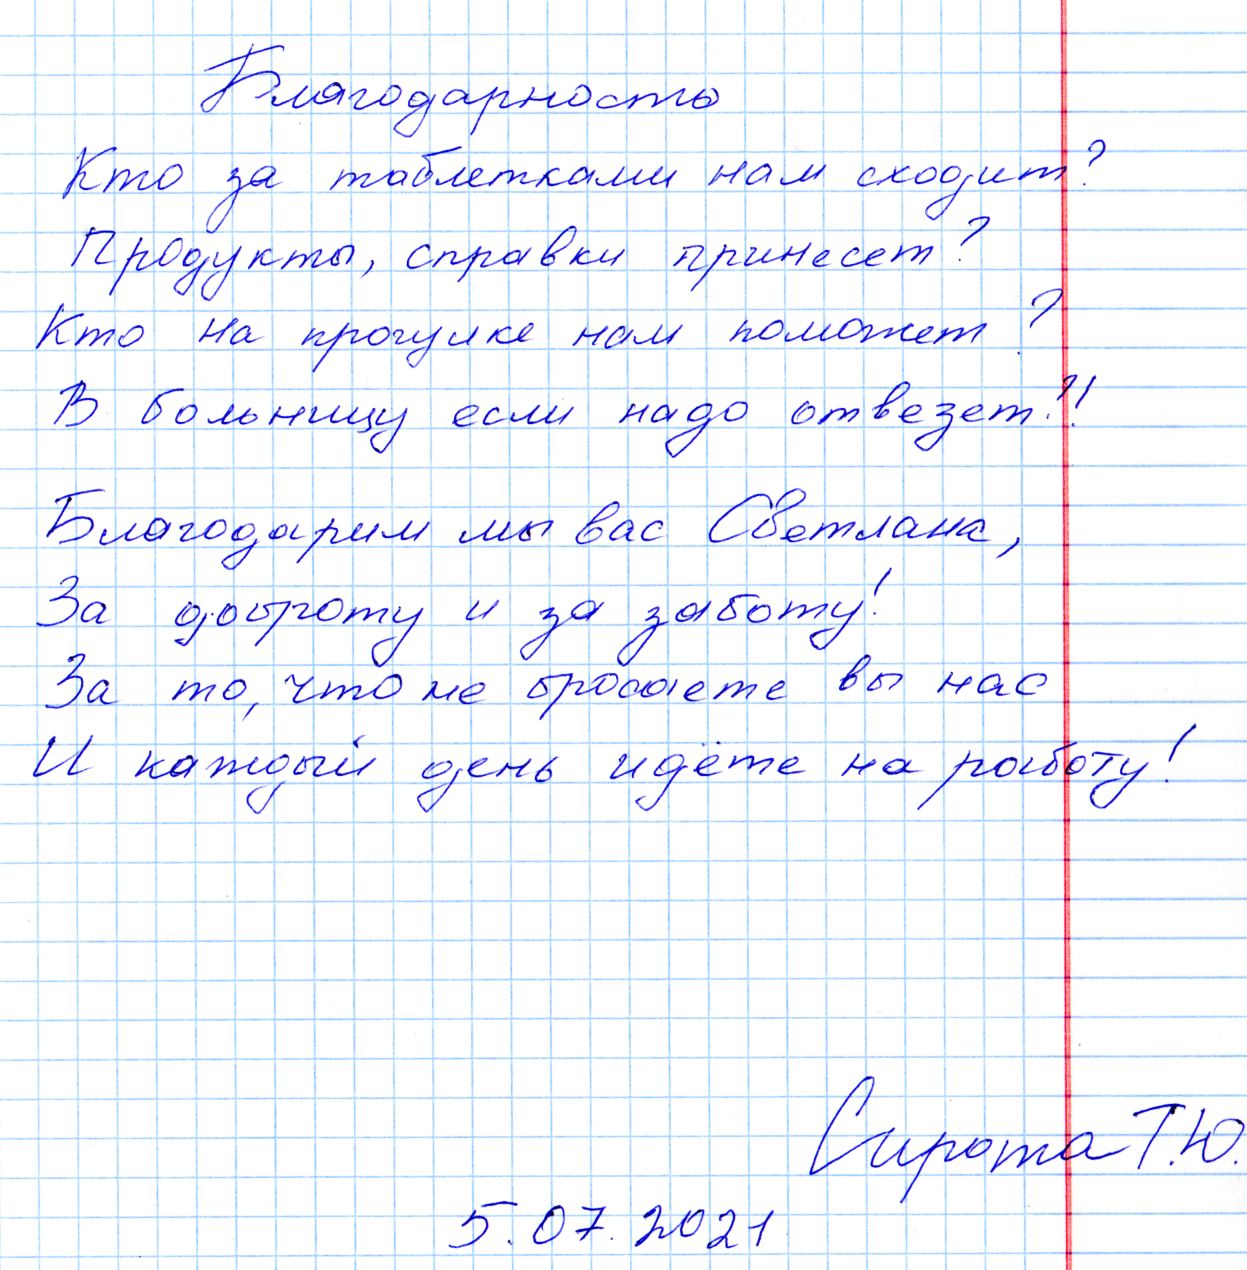 Благодарность
Кто за таблетками нам сходит?
Продукты, справки принесет?
Кто на прогулке нам поможет?
В больницу если надо отвезет?!
Благодарим мы вас Светлана,
За доброту и за заботу!
За то, что не бросаете вы нас
И каждый день идёте на работу!
Сирота Т.Ю.
5.07.2021